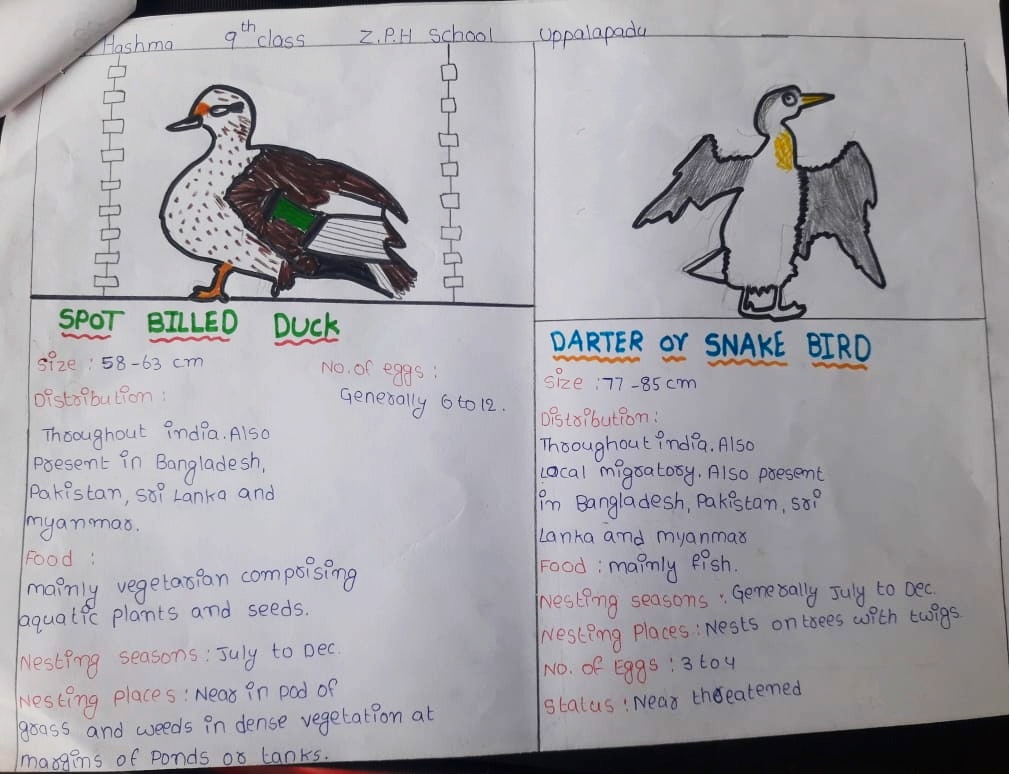 Hashma 9th class Z.P.H School Uppalapadu
SPOT BILLED DUCK
Size : 58-63 cm
No. of eggs :
Generally 6 to 12.
Distribution :
Throughout india. Also
Present in Bangladesh,
Pakistan, sri Lanka and
myanmar.
Food :
mainly vegetarian comprising
aquatic plants and seeds.
Nesting seasons : July to Dec.
Nesting places : Near in pad of
grass and weeds in dense vegetation at
margins of Ponds or tanks.
DARTER or SNAKE BIRD
Size : 77-85 cm
Distribution :
Throughout india. Also
Local migratory. Also present
in Bangladesh, Pakistan, sri
Lanka and myanmar
Food : mainly fish.
Nesting seasons : Generally July to Dec.
Nesting Places : Nests on trees with twigs
No. of Eggs : 3 to 4
Status : Near threatemed